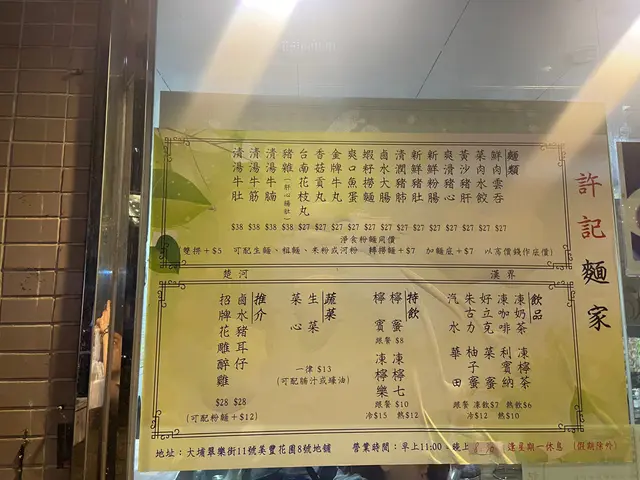 許記麵家
麵類
鮮肉雲吞 $27
菜肉水餃 $27
黃沙豬肝 $27
爽滑豬心 $27
新鮮粉腸 $27
新鮮豬肚 $27
清潤豬肺 $27
鹵水大腸 $27
蝦籽撈麵 $27
爽口魚蛋 $27
金牌牛丸 $27
香菇貢丸 $27
台南花枝丸 $27
豬雜(肝心腸肚) $38
清湯牛腩 $38
清湯牛筋 $38
清湯牛肚 $38
淨食粉麵同價
雙拼+$5 可配生麵、粗麵、米粉或河粉 轉撈麵+$7 加麵底+$7 以高價錢作底價)
楚河 漢界
飲品
凍奶茶 凍檸茶
凍咖啡 利賓納
好立克 菜蜜
朱古力 柚子蜜
汽水 華田
跟餐 凍飲$7 熱飲$6
冷$12 熱$10
特飲
檸蜜 凍檸七
檸賓 凍檸樂
跟餐 $8
跟餐 $10
冷$15 熱$12
蔬菜
生菜
菜心
一律 $13
(可配腩汁或蠔油)
推介
鹵水豬耳仔 $28
招牌花雕醉雞 $28
(可配粉麵+$12)
地址:大埔翠樂街11號美豐花園8號地舖 營業時間:早上11:00 - 晚上 逢星期一休息 (假期除外)